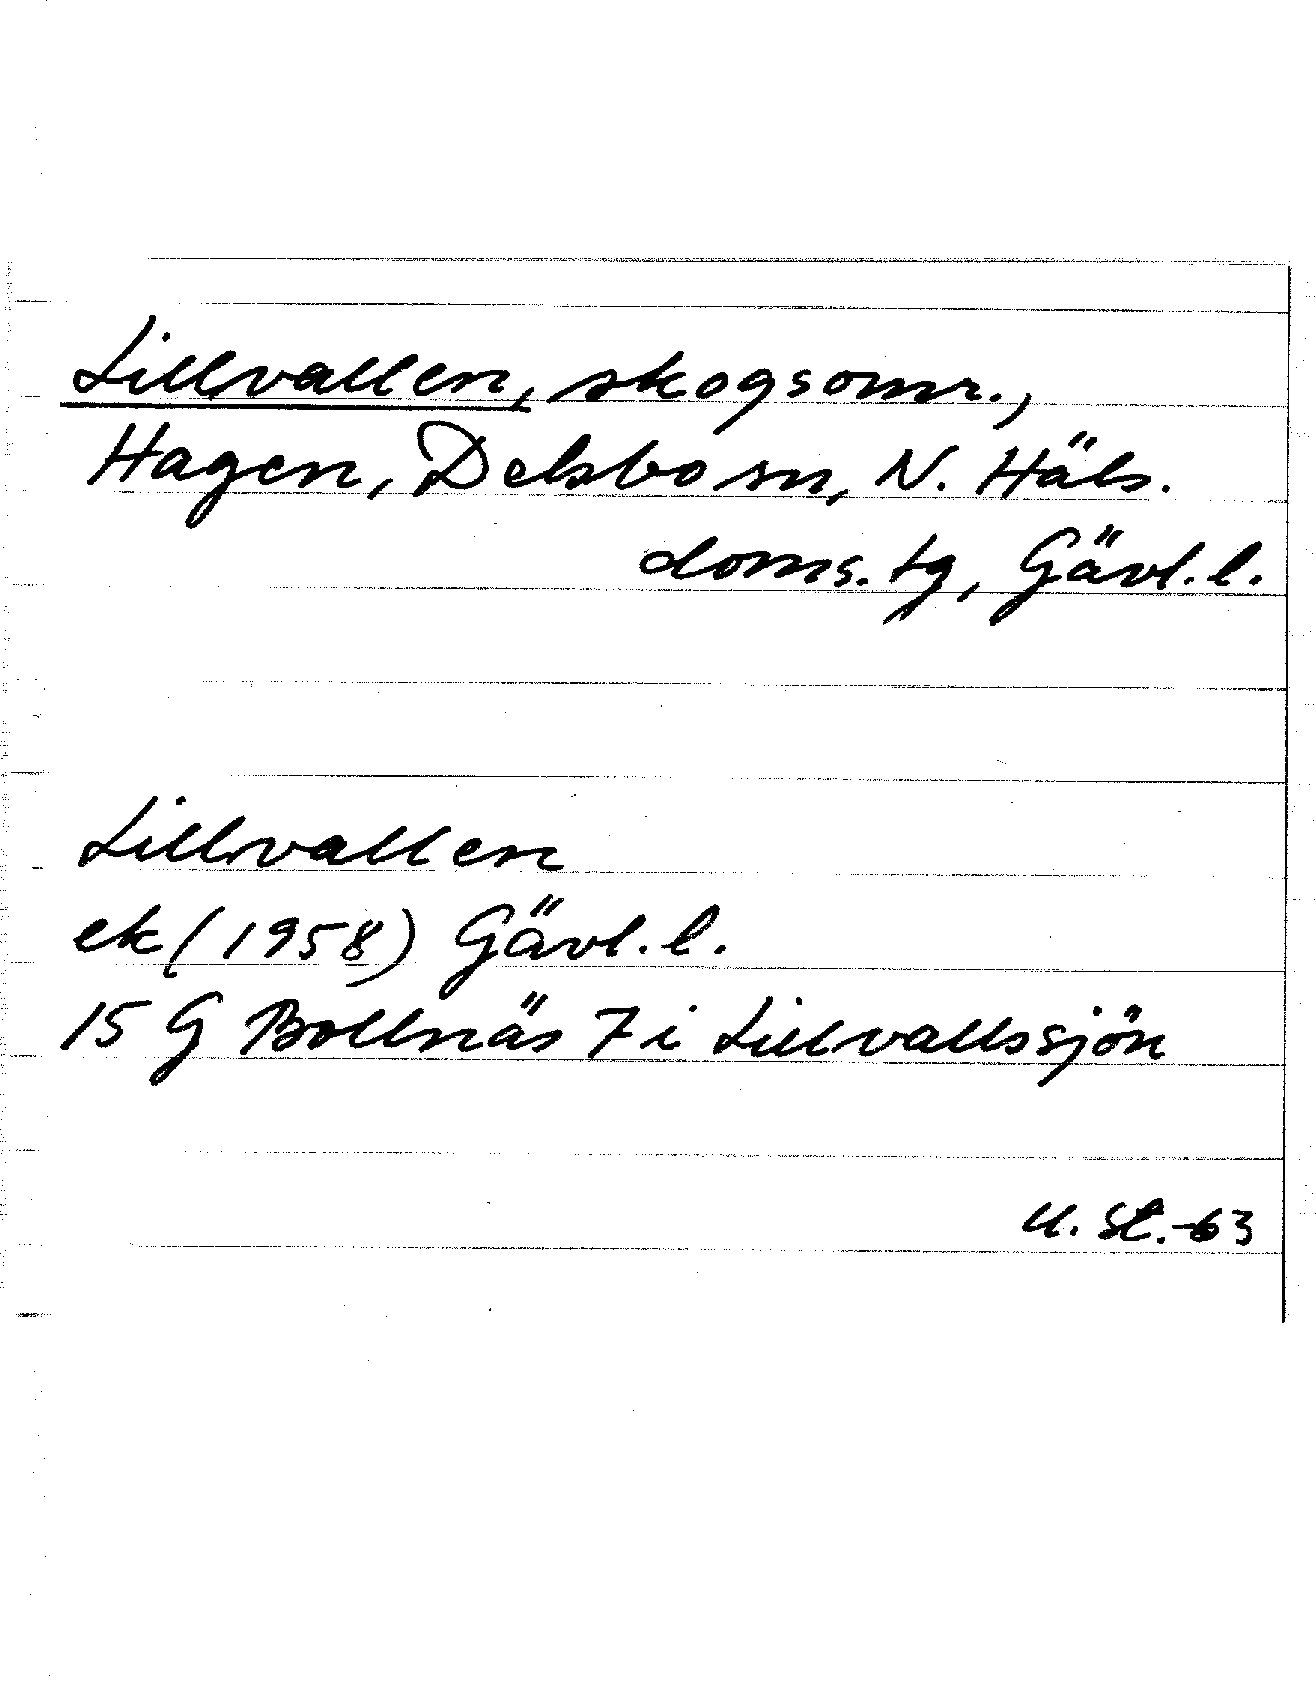 Lillvallen, skogsomr.,
Hagen, Delsbo sn, N. Häls.
doms. tg, Gävl. l.
Lillvallen
ek (1958) Gävl. l.
15 G Bollnäs 7 i Lillvallssjön
U. St. -63